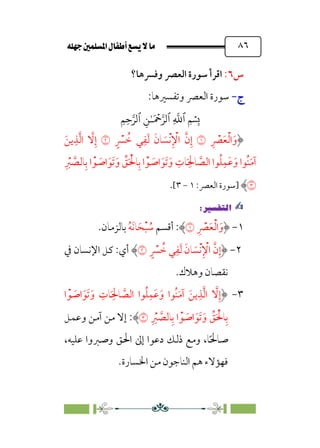 ما لا يسع أطفال المسلمين جهله
٨٦
س٦: اقرأ سورة العصر وفسرها؟
ج- سورة العصر وتفسيرها:
بِسْمِ اللَّهِ الرَّحْمَٰنِ الرَّحِيمِ
﴿وَالْعَصْرِ ۝١ إِنَّ الْإِنسَانَ لَفِي خُسْرٍ ۝٢ إِلَّا الَّذِينَ
آمَنُوا وَعَمِلُوا الصَّالِحَاتِ وَتَوَاصَوْا بِالْحَقِّ وَتَوَاصَوْا بِالصَّبْرِ
۝٣﴾ [سورة العصر: ١ - ٣].
التفسير:
١- ﴿وَالْعَصْرِ ۝١﴾: أقسم سُبْحَانَهُ بالزمان.
٢- ﴿إِنَّ الْإِنسَانَ لَفِي خُسْرٍ ۝٢﴾ أي: كل الإنسان في
نقصان وهلاك.
٣- ﴿إِلَّا الَّذِينَ آمَنُوا وَعَمِلُوا الصَّالِحَاتِ وَتَوَاصَوْا
بِالْحَقِّ وَتَوَاصَوْا بِالصَّبْرِ ۝٣﴾: إلا من آمن وعمل
صالحًا، ومع ذلك دعوا إلى الحق وصبروا عليه،
فهؤلاء هم الناجون من الخسارة.